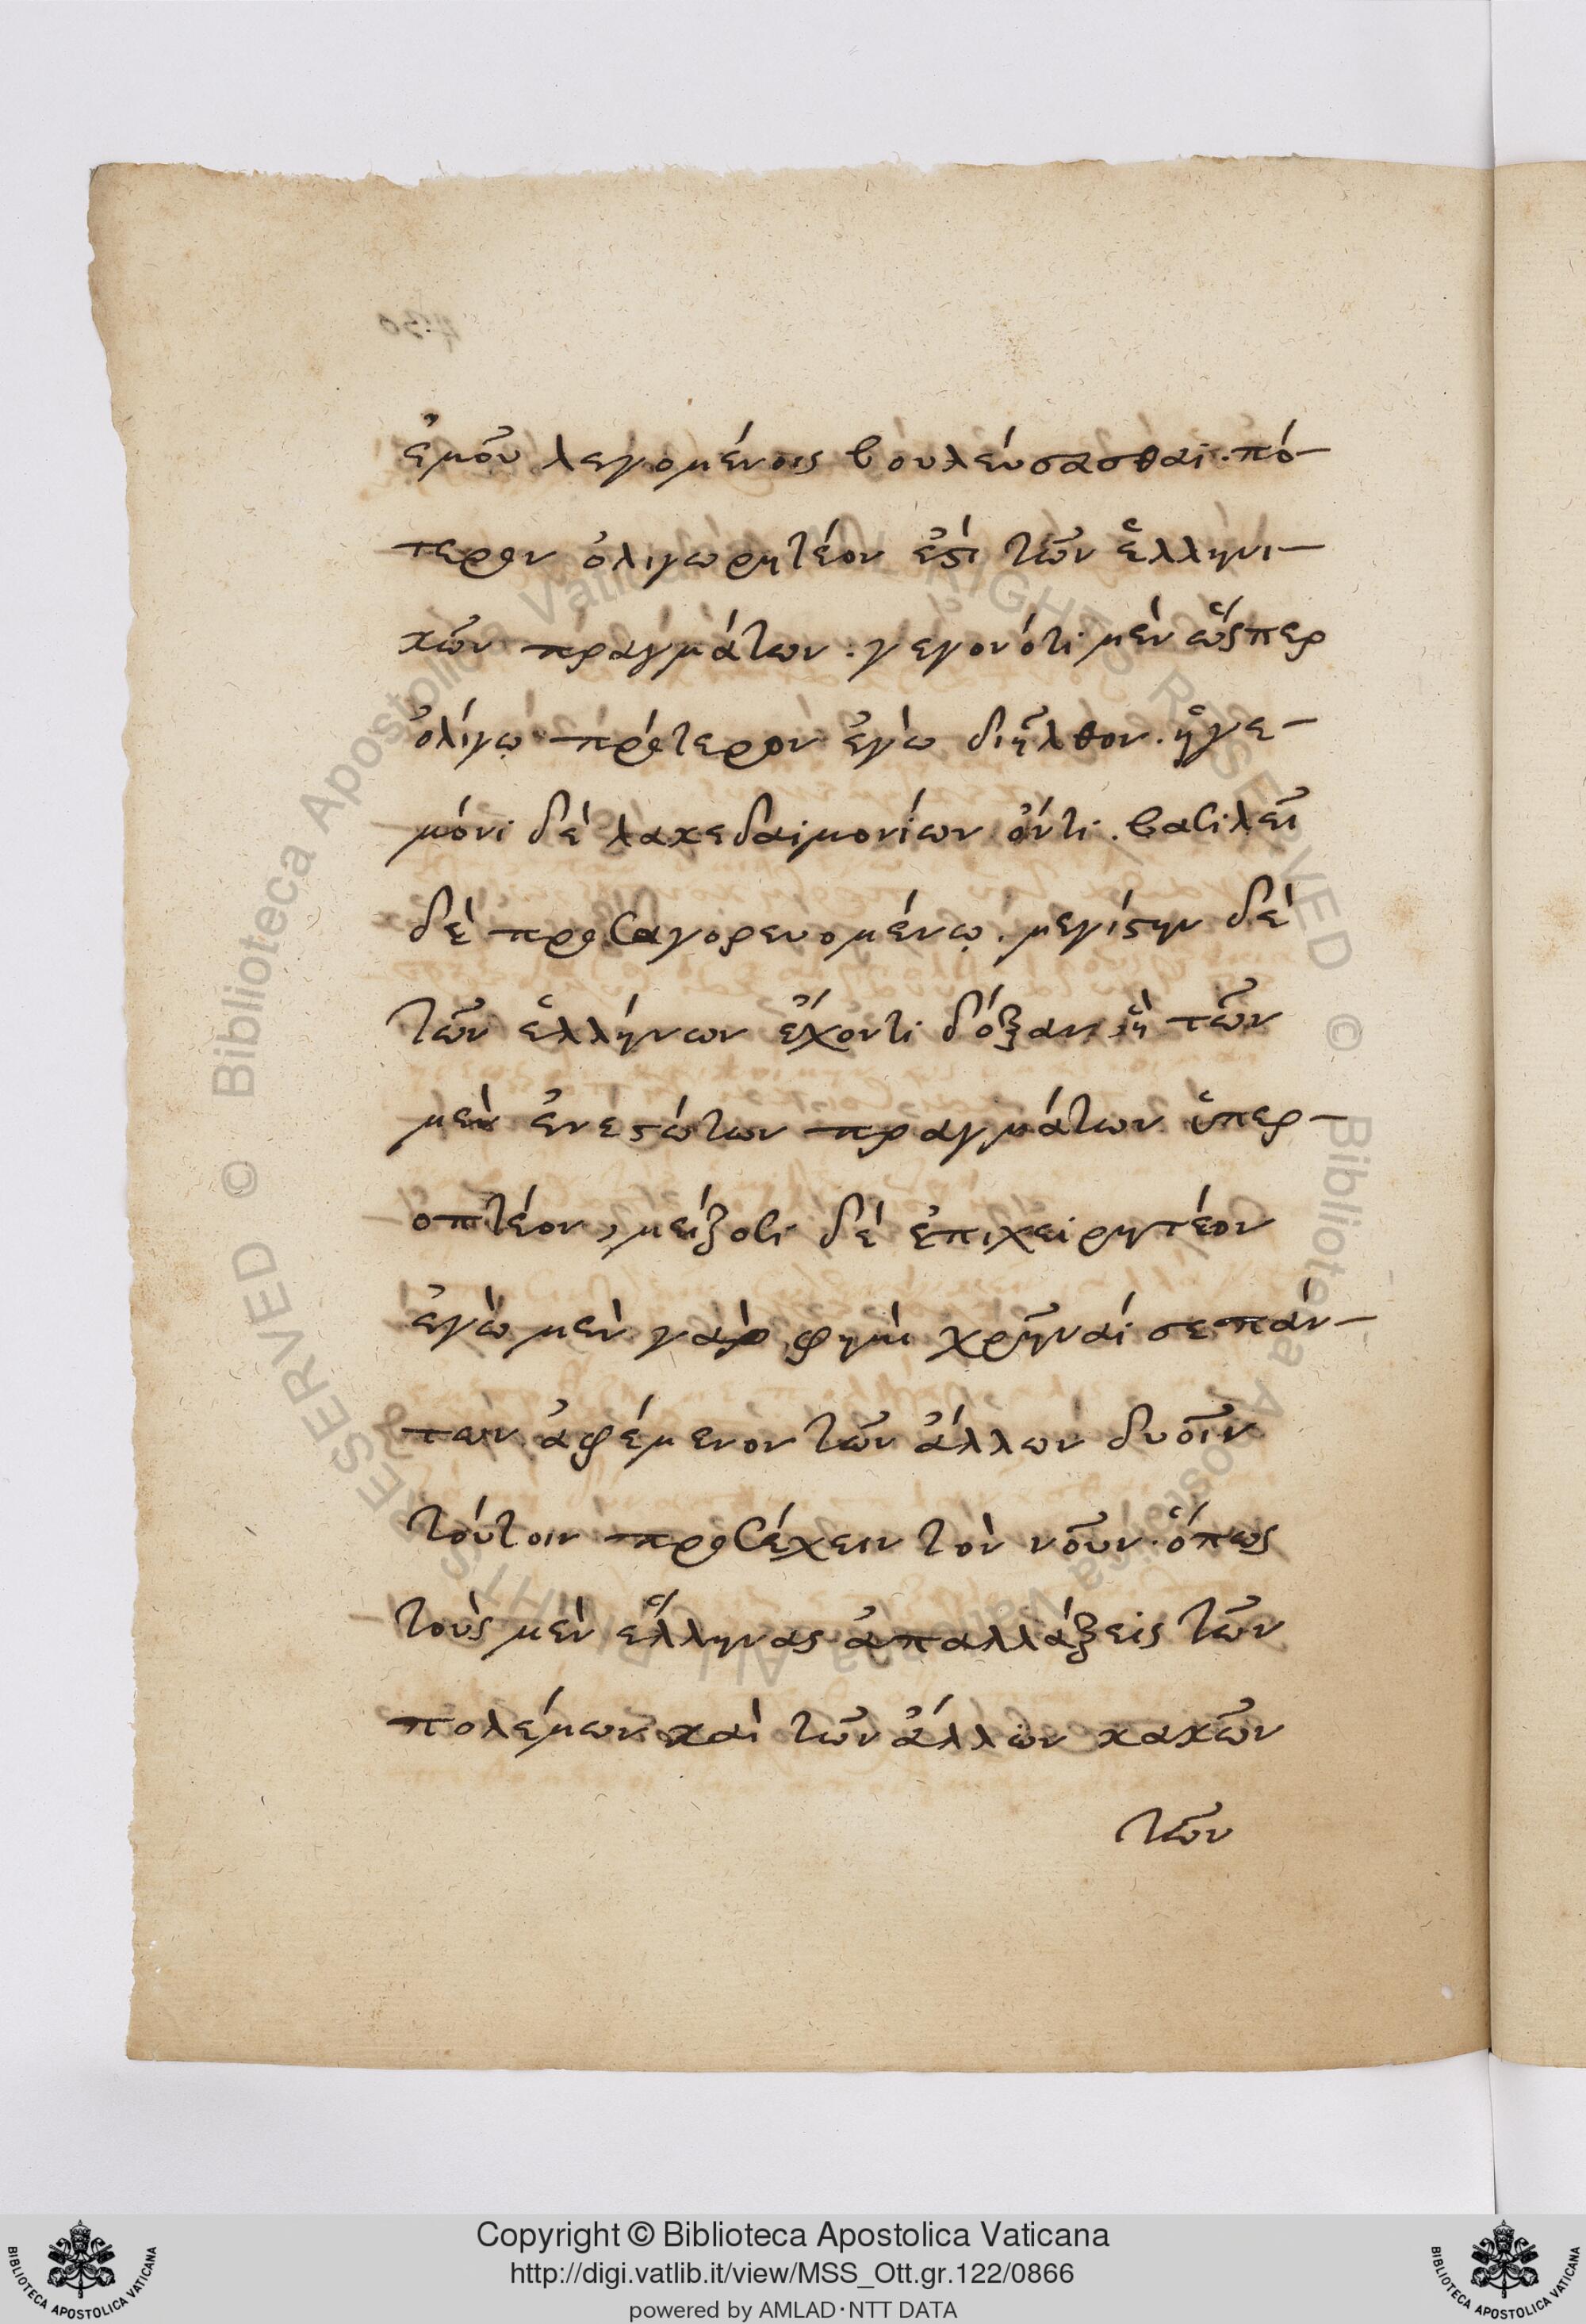 ἐμοῦ λεγομένοις βουλεύσασθαι. πό-
τερον ὀλιγωρητέον ἐϛί τῶν ἑλληνι-
κῶν πραγμάτων. γεγονότι μὲν ὥςπερ
ὀλίγῳ πρότερον ἐγὼ διῆλθον. ἡγε-
μόνι δὲ λακεδαιμονίων ὄντι. βασιλεῖ
δὲ προσαγορευομένῳ. μεγίϛην δὲ
τῶν ἑλλήνων ἔχοντι δόξαν, ἢ τῶν
μὲν ἐνεϛώτων πραγμάτων ὑπερ-
οπτέον, μείζοσι δὲ ἐπιχειρητέον
ἐγὼ μὲν γὰρ φημὶ χρῆναί σε πάν-
των ἀφέμενον τῶν ἄλλων δυοῖν
τούτοιν προσέχειν τὸν νοῦν. ὅπως
τοὺς μὲν ἕλληνας ἀπαλλάξεις τῶν
πολέμων καὶ τῶν ἄλλων κακῶν
τῶν
Copyright © Biblioteca Apostolica Vaticana
http://digi.vatlib.it/view/MSS_Ott.gr.122/0866
powered by AMLAD·NTT DATA
BIBLIOTECA APOSTOLICA VATICANA
BIBLIOTECA APOSTOLICA VATICANA